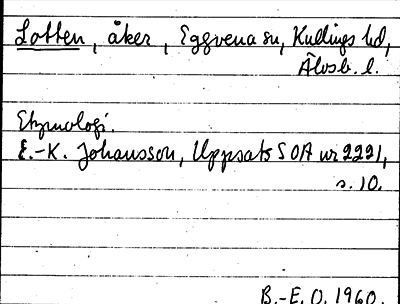 Lotten, åker, Eggvena sn, Kullings hd,
Älvsb. l.
Etymologi.
E.-K. Johansson, Uppsats SOA nr 2221,
s. 10.
B.-E. O. 1960.